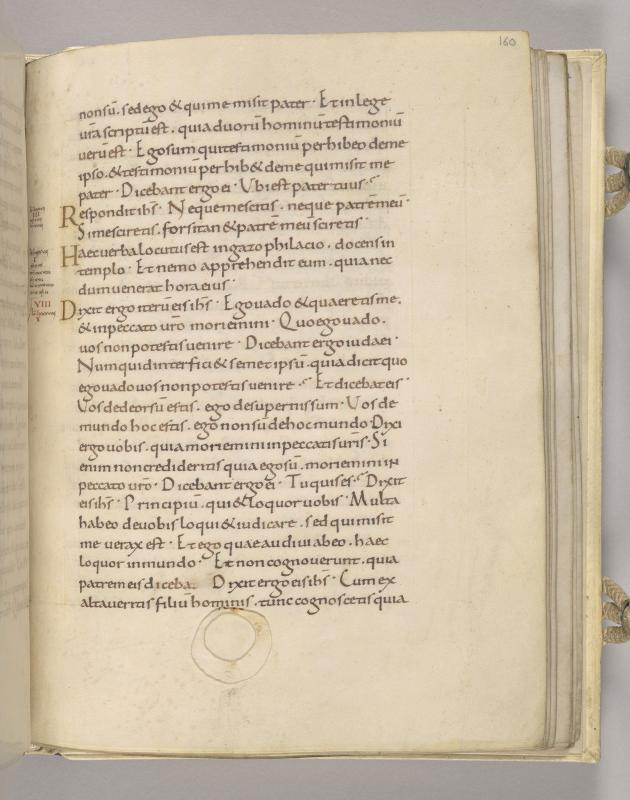 160
nonsū. sedego & quime misit pater · Et in lege
urā scriptū est. quia duorū hominū testimoniū
uerū est · Ego sum qui testimoniū perhibeo de me
ipso. & testimoniū perhib& de me qui misit me
pater · Dicebant ergo ei · Ubi est pater tuus ·
Respondit ihs · Neque me scitis. neque patrē meū ·
Si me sciretis. forsitan & patrē meū sciretis ·
Haec uerba locutus est in gazophilacio. docens in
templo · Et nemo apprehendit eum. quia nec
dum uenerat hora eius ·
VIII
Dixit ergo iterū eis ihs · Ego uado & quaeretis me.
& in peccato urō moriemini · Quo ego uado.
uos non potestis uenire · Dicebant ergo iudaei ·
Numquid interfici& semet ipsū. quia dicit quo
ego uado uos non potestis uenire · Et dicebat eis ·
Uos de deorsū estis. ego de supernis sum · Uos de
mundo hoc estis. ego non sū de hoc mundo · Dixi
ergo uobis. quia moriemini in peccatis uris · Si
enim non credideritis quia ego sū. moriemini in
peccato urō · Dicebant ergo ei · Tu quis es · Dixit
eis ihs · Principiū. qui & loquor uobis · Multa
habeo de uobis loqui & iudicare. sed qui misit
me uerax est · Et ego quae audiui ab eo. haec
loquor in mundo · Et non cognouerunt. quia
patrem eis diceba. Dixit ergo eis ihs · Cum ex
altaueritis filiū hominis. tunc cognoscetis quia